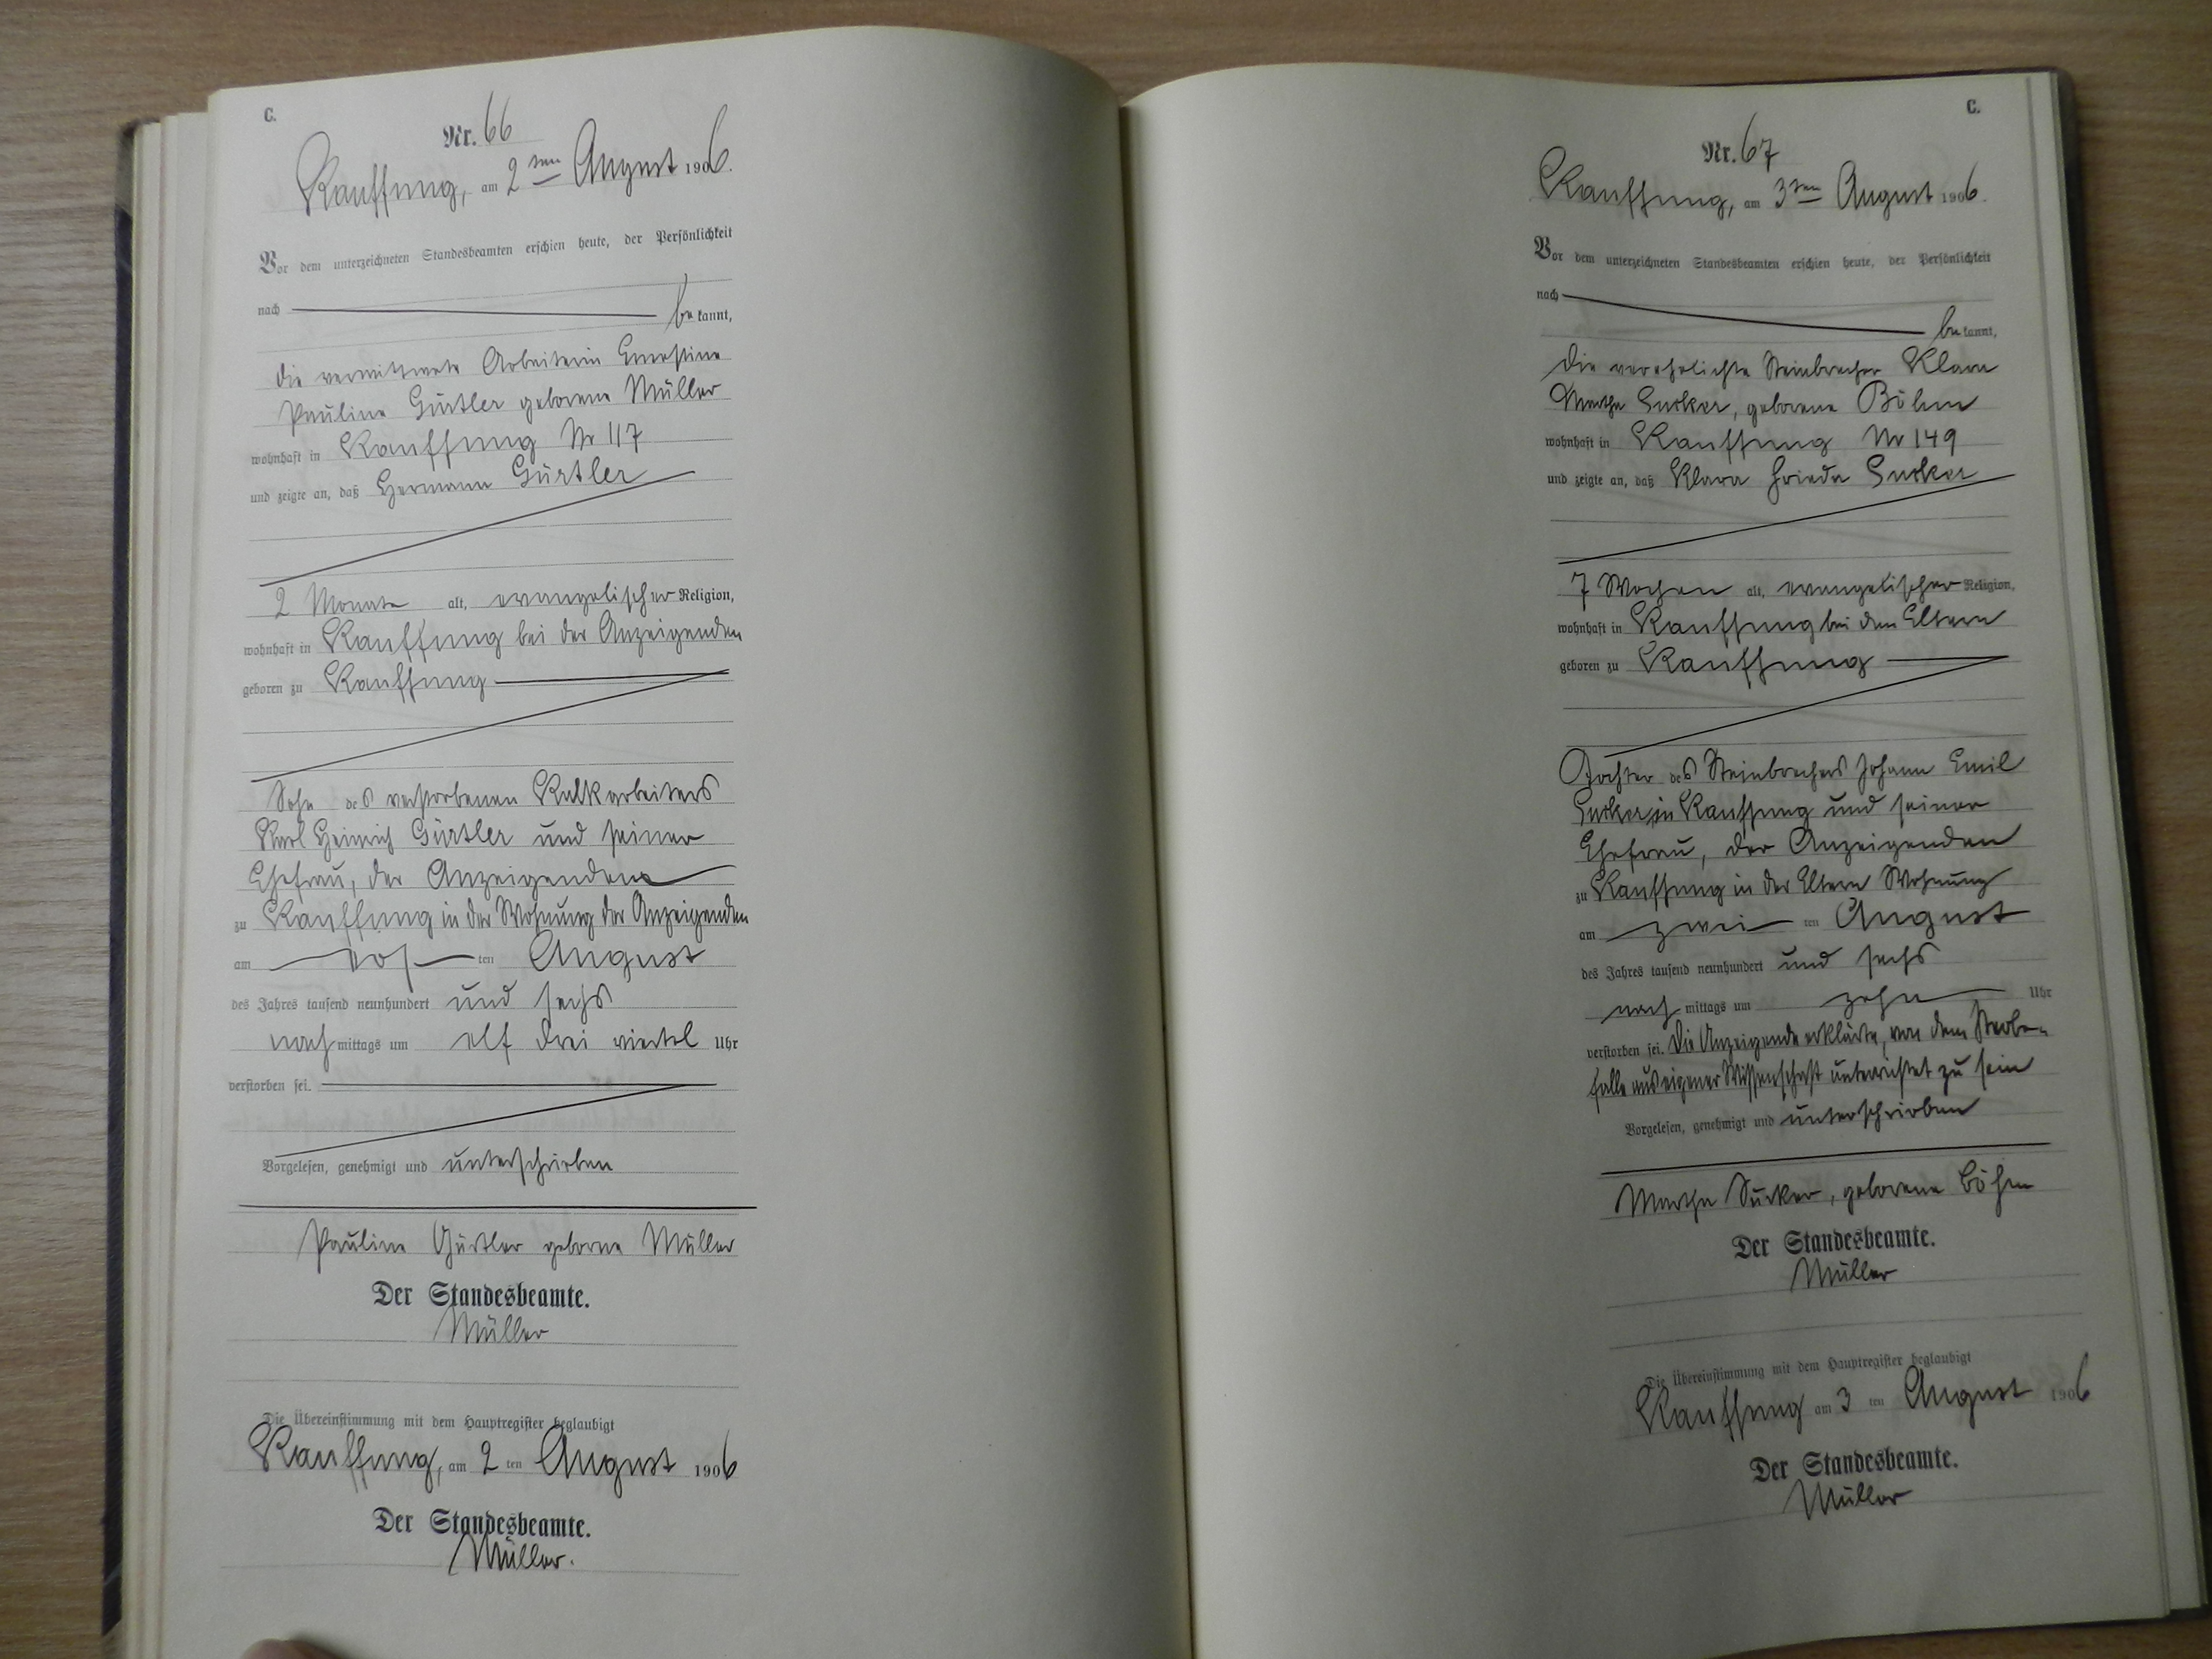 C.
Nr. 66
Kauffung, am 2ten August 1906.
Vor dem unterzeichneten Standesbeamten erschien heute, der Persönlichkeit
nach
bekannt,
die verwittwete Arbeiterin Ernestine
Pauline Gürtler geborene Müller
wohnhaft in Kauffung Nr 117
und zeigte an, daß Hermann Gürtler
2 Monate alt, evangelischer Religion,
wohnhaft in Kauffung bei der Anzeigenden
geboren zu Kauffung
Sohn des verstorbenen Kalkarbeiters
Karl Heinrich Gürtler und seiner
Ehefrau, der Anzeigenden
zu Kauffung in der Wohnung der Anzeigenden
am ten August
des Jahres tausend neunhundert und sechs
nachmittags um elf drei viertel Uhr
verstorben sei.
Vorgelesen, genehmigt und unterschrieben
Pauline Gürtler geborne Müller
Der Standesbeamte.
Müller
Die Übereinstimmung mit dem Hauptregister beglaubigt
Kauffung, am 2 ten August 1906
Der Standesbeamte.
Müller.
C.
Nr. 67
Kauffung, am 3ten August 1906.
Vor dem unterzeichneten Standesbeamten erschien heute, der Persönlichkeit
nach
bekannt,
die verehelichte Steinbrecher Klara
Martha Sucker, geborene Böhm
wohnhaft in Kauffung Nr 149
und zeigte an, daß Klara Frieda Sucker
7 Wochen alt, evangelischer Religion,
wohnhaft in Kauffung bei den Eltern
geboren zu Kauffung
Tochter des Steinbrechers Johann Emil
Sucker in Kauffung und seiner
Ehefrau, der Anzeigenden
zu Kauffung in der Eltern Wohnung
am zwei ten August
des Jahres tausend neunhundert und sechs
nachmittags um zehn Uhr
verstorben sei. Die Anzeigende erklärte, von dem Sterbe-
falle aus eigener Wissenschaft unterrichtet zu sein
Vorgelesen, genehmigt und unterschrieben
Martha Sucker, geborene Böhm
Der Standesbeamte.
Müller
Die Übereinstimmung mit dem Hauptregister beglaubigt
Kauffung am 3 ten August 1906
Der Standesbeamte.
Müller